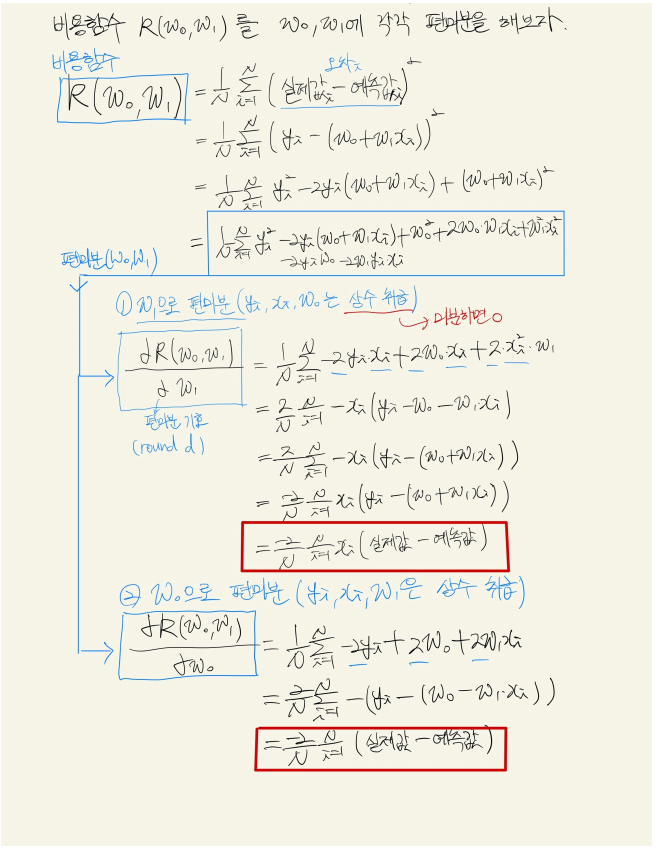 비용함수 R(w₀,w₁)를 w₀,w₁에 각각 편미분을 해보자.
비용함수
오차ᵢ
R(w₀,w₁) = 1/N Σᵢ₌₁ᴺ (실제값ᵢ - 예측값ᵢ)²
= 1/N Σᵢ₌₁ᴺ (yᵢ - (w₀+w₁xᵢ))²
= 1/N Σᵢ₌₁ᴺ yᵢ² - 2yᵢ(w₀+w₁xᵢ) + (w₀+w₁xᵢ)²
= 1/N Σᵢ₌₁ᴺ yᵢ² - 2yᵢ(w₀+w₁xᵢ) + w₀² + 2w₀·w₁xᵢ + w₁²xᵢ²
-2yᵢw₀ - 2w₁yᵢxᵢ
편미분(w₀,w₁)
① w₁으로 편미분(yᵢ, xᵢ, w₀는 상수 취급)
→ 미분하면 0
∂R(w₀,w₁)/∂w₁ = 1/N Σᵢ₌₁ᴺ -2yᵢ·xᵢ + 2w₀·xᵢ + 2·xᵢ²·w₁
편미분 기호
(round d)
= 2/N Σᵢ₌₁ᴺ -xᵢ(yᵢ - w₀ - w₁xᵢ)
= 2/N Σᵢ₌₁ᴺ -xᵢ(yᵢ - (w₀+w₁xᵢ))
= -2/N Σᵢ₌₁ᴺ xᵢ(yᵢ - (w₀+w₁xᵢ))
= -2/N Σᵢ₌₁ᴺ xᵢ(실제값 - 예측값)
② w₀으로 편미분(yᵢ, xᵢ, w₁은 상수 취급)
∂R(w₀,w₁)/∂w₀ = 1/N Σᵢ₌₁ᴺ -2yᵢ + 2w₀ + 2w₁xᵢ
= 2/N Σᵢ₌₁ᴺ -(yᵢ - (w₀ - w₁·xᵢ))
= -2/N Σᵢ₌₁ᴺ (실제값 - 예측값)